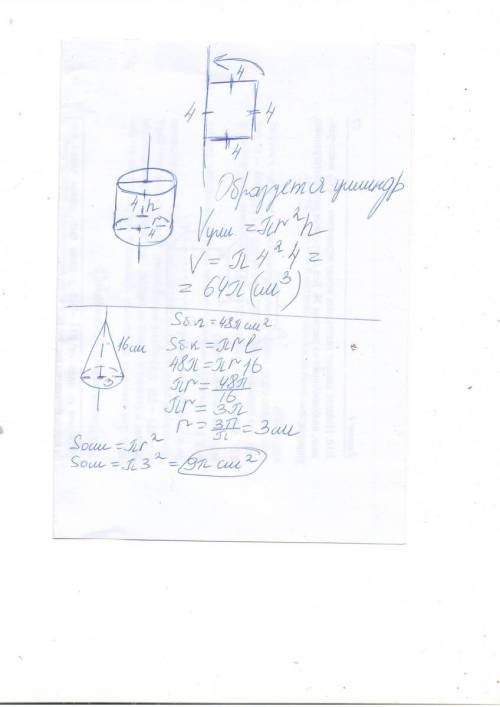 4
4
4
4
Образуется цилиндр
4
h
r
4
Vцил = πr²h
V = π 4² 4 =
= 64π (см³)
16см
3
Sб.п = 48π см²
Sб.п = πrl
48π = πr 16
πr = 48π/16
πr = 3π
r = 3π/π = 3см
Sосн = πr²
Sосн = π3² = 9π см²